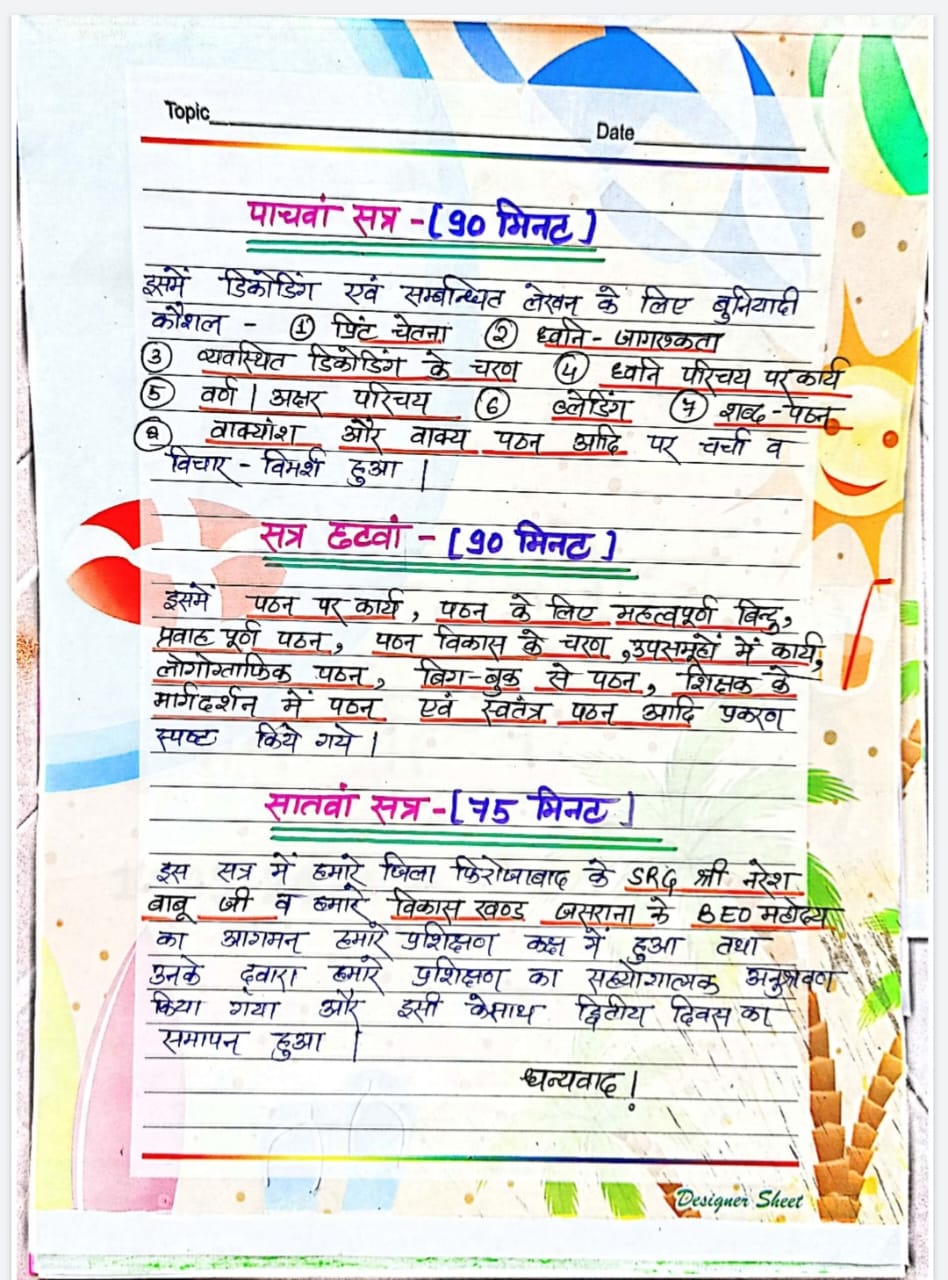 Topic
Date
पाचवां सत्र - [90 मिनट]
इसमें डिकोडिंग एवं सम्बन्धित लेखन के लिए बुनियादी
कौशल - ① प्रिंट चेतना ② ध्वनि - जागरूकता
③ व्यवस्थित डिकोडिंग के चरण ④ ध्वनि परिचय पर कार्य
⑤ वर्ण / अक्षर परिचय ⑥ ब्लेडिंग ⑦ शब्द - पठन
⑧ वाक्यांश और वाक्य पठन आदि पर चर्चा व
विचार - विमर्श हुआ |
सत्र छटवां - [90 मिनट]
इसमें पठन पर कार्य, पठन के लिए महत्वपूर्ण बिन्दु,
प्रवाह पूर्ण पठन, पठन विकास के चरण, उपसमूहों में कार्य,
लोगोग्राफिक पठन, बिग-बुक से पठन, शिक्षक के
मार्गदर्शन में पठन एवं स्वतंत्र पठन आदि प्रकरण
स्पष्ट किये गये |
सातवां सत्र - [75 मिनट]
इस सत्र में हमारे जिला फिरोजाबाद के SRG श्री नरेश
बाबू जी व हमारे विकास खण्ड जसराना के BEO महोदय
का आगमन हमारे प्रशिक्षण कक्ष में हुआ तथा
उनके द्वारा हमारे प्रशिक्षण का सहयोगात्मक अनुश्रवण
किया गया और इसी केसाथ द्वितीय दिवस का
समापन हुआ |
धन्यवाद !
Designer Sheet